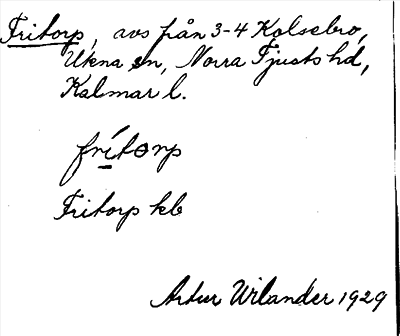 Fritorp, avs från 3-4 Kolsebro,
Ukna sn, Norra Tjusts hd,
Kalmar l.
frítorp
Fritorp kb
Artur Wilander 1929